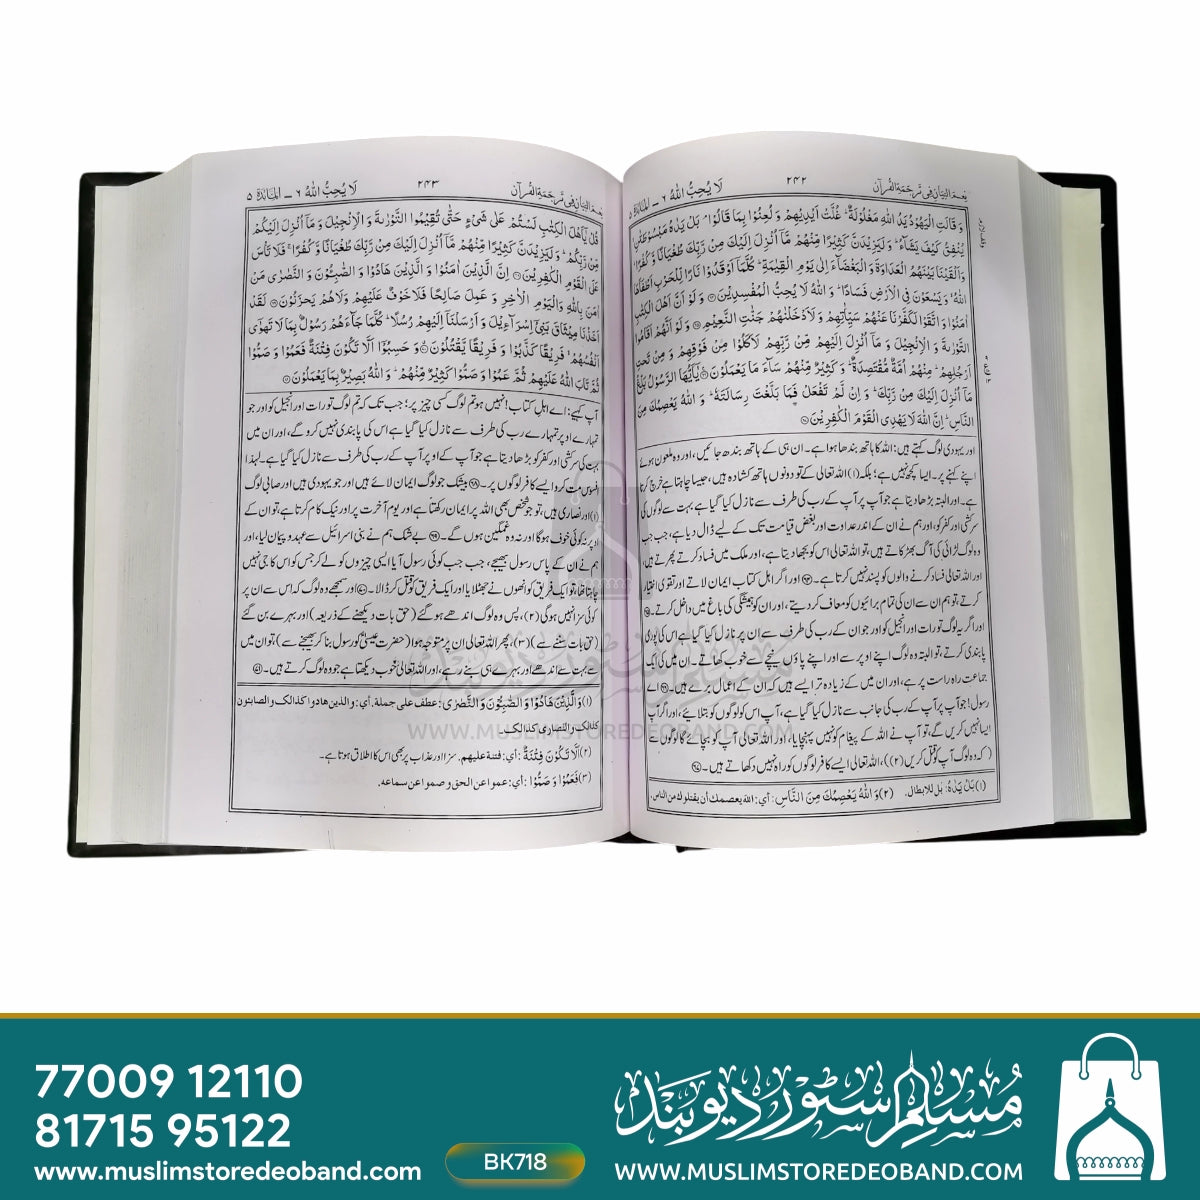 نعم البیان فی ترجمۃ القرآن
۲۴۲
لَا یُحِبُّ اللّٰہُ ۶ ـ المائدۃ ۵
وَ قَالَتِ الْیَهُوْدُ یَدُ اللّٰهِ مَغْلُوْلَةٌ ؕ غُلَّتْ اَیْدِیْهِمْ وَ لُعِنُوْا بِمَا قَالُوْا ۘ بَلْ یَدٰهُ مَبْسُوْطَتٰنِ ۙ
یُنْفِقُ كَیْفَ یَشَآءُ ؕ وَ لَیَزِیْدَنَّ كَثِیْرًا مِّنْهُمْ مَّاۤ اُنْزِلَ اِلَیْكَ مِنْ رَّبِّكَ طُغْیَانًا وَّ كُفْرًا ؕ
وَ اَلْقَیْنَا بَیْنَهُمُ الْعَدَاوَةَ وَ الْبَغْضَآءَ اِلٰى یَوْمِ الْقِیٰمَةِ ؕ كُلَّمَاۤ اَوْقَدُوْا نَارًا لِّلْحَرْبِ اَطْفَاَهَا
اللّٰهُ ۙ وَ یَسْعَوْنَ فِی الْاَرْضِ فَسَادًا ؕ وَ اللّٰهُ لَا یُحِبُّ الْمُفْسِدِیْنَ ۝ وَ لَوْ اَنَّ اَهْلَ الْكِتٰبِ
اٰمَنُوْا وَ اتَّقَوْا لَكَفَّرْنَا عَنْهُمْ سَیِّاٰتِهِمْ وَ لَاَدْخَلْنٰهُمْ جَنّٰتِ النَّعِیْمِ ۝ وَ لَوْ اَنَّهُمْ اَقَامُوا
التَّوْرٰىةَ وَ الْاِنْجِیْلَ وَ مَاۤ اُنْزِلَ اِلَیْهِمْ مِّنْ رَّبِّهِمْ لَاَكَلُوْا مِنْ فَوْقِهِمْ وَ مِنْ تَحْتِ
اَرْجُلِهِمْ ؕ مِنْهُمْ اُمَّةٌ مُّقْتَصِدَةٌ ؕ وَ كَثِیْرٌ مِّنْهُمْ سَآءَ مَا یَعْمَلُوْنَ ۝ یٰۤاَیُّهَا الرَّسُوْلُ بَلِّغْ
مَاۤ اُنْزِلَ اِلَیْكَ مِنْ رَّبِّكَ ؕ وَ اِنْ لَّمْ تَفْعَلْ فَمَا بَلَّغْتَ رِسَالَتَهٗ ؕ وَ اللّٰهُ یَعْصِمُكَ مِنَ
النَّاسِ ؕ اِنَّ اللّٰهَ لَا یَهْدِی الْقَوْمَ الْكٰفِرِیْنَ ۝
اور یہودی لوگ کہتے ہیں: اللہ کا ہاتھ بندھا ہوا ہے۔ ان ہی کے ہاتھ بندھ جائیں، اور وہ ملعون ہوئے
اپنے کہنے پر۔ ایسا کچھ نہیں ہے؛ بلکہ (۱) اللہ تعالی کے تو دونوں ہاتھ کشادہ ہیں، جیسا چاہتا ہے خرچ کرتا
ہے۔ اور البتہ بڑھا دیتا ہے جو آپ پر آپ کے رب کی طرف سے نازل کیا گیا ہے بہت سے لوگوں کی
سرکشی اور کفر کو، اور ہم نے ان کے اندر عداوت اور بغض قیامت تک کے لیے ڈال دیا ہے، جب جب
وہ لوگ لڑائی کی آگ بھڑکاتے ہیں، تو اللہ تعالی اس کو بجھا دیتا ہے، اور ملک میں فساد کرتے پھرتے ہیں،
اور اللہ تعالی فساد کرنے والوں کو پسند نہیں کرتا ہے۔ ۶۴ اور اگر اہل کتاب ایمان لاتے اور تقوی اختیار
کرتے، تو ہم ان سے ان کی تمام برائیوں کو معاف کر دیتے، اور ان کو ہمیشگی کی باغ میں داخل کرتے۔ ۶۵
اور اگر یہ لوگ تورات اور انجیل کو اور جو ان کے رب کی طرف سے ان پر نازل کیا گیا ہے اس کی پوری
پابندی کرتے، تو البتہ وہ لوگ اپنے اوپر سے اور اپنے پاؤں نیچے سے خوب کھاتے۔ ان میں کی ایک
جماعت راہ راست پر ہے، اور ان میں کے زیادہ تر ایسے ہیں کہ ان کے اعمال برے ہیں۔ ۶۶ اے
رسول! جو آپ پر آپ کے رب کی جانب سے نازل کیا گیا ہے، آپ اس کو لوگوں کو بتلائیے، اور اگر آپ
ایسا نہیں کریں گے، تو آپ نے اللہ کے پیغام کو نہیں پہنچایا، اور اللہ تعالی آپ کو بچائے گا لوگوں سے
(کہ وہ لوگ آپ کو قتل کریں (۲))، اللہ تعالی ایسے کافر لوگوں کو راہ نہیں دکھاتے ہیں۔ ۶۷
(۱) بَلْ یَدٰهُ: بل للإبطال. (۲) وَ اللّٰهُ یَعْصِمُكَ مِنَ النَّاسِ: أي: الله یعصمك أن یقتلوك من الناس.
نعم البیان فی ترجمۃ القرآن
۲۴۳
لَا یُحِبُّ اللّٰہُ ۶ ـ المائدۃ ۵
قُلْ یٰۤاَهْلَ الْكِتٰبِ لَسْتُمْ عَلٰى شَیْءٍ حَتّٰى تُقِیْمُوا التَّوْرٰىةَ وَ الْاِنْجِیْلَ وَ مَاۤ اُنْزِلَ اِلَیْكُمْ
مِّنْ رَّبِّكُمْ ؕ وَ لَیَزِیْدَنَّ كَثِیْرًا مِّنْهُمْ مَّاۤ اُنْزِلَ اِلَیْكَ مِنْ رَّبِّكَ طُغْیَانًا وَّ كُفْرًا ۚ فَلَا تَاْسَ
عَلَى الْقَوْمِ الْكٰفِرِیْنَ ۝ اِنَّ الَّذِیْنَ اٰمَنُوْا وَ الَّذِیْنَ هَادُوْا وَ الصّٰبِـُٔوْنَ وَ النَّصٰرٰى مَنْ
اٰمَنَ بِاللّٰهِ وَ الْیَوْمِ الْاٰخِرِ وَ عَمِلَ صَالِحًا فَلَا خَوْفٌ عَلَیْهِمْ وَ لَا هُمْ یَحْزَنُوْنَ ۝ لَقَدْ
اَخَذْنَا مِیْثَاقَ بَنِیْۤ اِسْرَآءِیْلَ وَ اَرْسَلْنَاۤ اِلَیْهِمْ رُسُلًا ؕ كُلَّمَا جَآءَهُمْ رَسُوْلٌۢ بِمَا لَا تَهْوٰۤى
اَنْفُسُهُمْ ۙ فَرِیْقًا كَذَّبُوْا وَ فَرِیْقًا یَّقْتُلُوْنَ ۝ وَ حَسِبُوْۤا اَلَّا تَكُوْنَ فِتْنَةٌ فَعَمُوْا وَ صَمُّوْا
ثُمَّ تَابَ اللّٰهُ عَلَیْهِمْ ثُمَّ عَمُوْا وَ صَمُّوْا كَثِیْرٌ مِّنْهُمْ ؕ وَ اللّٰهُ بَصِیْرٌۢ بِمَا یَعْمَلُوْنَ ۝
آپ کہیے: اے اہل کتاب! نہیں ہو تم لوگ کسی چیز پر؛ جب تک کہ تم لوگ تورات اور انجیل کو اور جو
تمہارے اوپر تمہارے رب کی طرف سے نازل کیا گیا ہے اس کی پابندی نہیں کرو گے، اور ان میں
بہت کی سرکشی اور کفر کو بڑھا دیتا ہے جو آپ کے اوپر آپ کے رب کی طرف سے نازل کیا گیا ہے۔ لہذا
افسوس مت کرو ایسے کافر لوگوں پر۔ ۶۸ بیشک جو لوگ ایمان لائے ہیں اور جو یہودی ہیں اور صابی لوگ
(۱) اور نصاری ہیں، تو جو شخص بھی اللہ پر ایمان رکھتا ہے اور یوم آخرت پر اور نیک کام کرتا ہے، تو ان کے
اوپر نہ کوئی خوف ہوگا اور نہ وہ غمگین ہوں گے۔ ۶۹ بے شک ہم نے بنی اسرائیل سے عہد و پیمان لیا، اور
ہم نے ان کے پاس رسول بھیجے، جب جب کوئی رسول آیا ایسی چیزوں کو لے کر جس کو اس کا جی نہیں
چاہتا تھا، تو ایک فریق کو انھوں نے جھٹلایا اور ایک فریق کو قتل کر ڈالا۔ ۷۰ اور سمجھے وہ لوگ کہ اس سے ان پر
کوئی سزا نہیں ہوگی (۲)، پس وہ لوگ اندھے ہو گئے (حق بات دیکھنے کے ذریعہ) اور بہرے بن گئے
(حق بات سننے سے) (۳)، پھر اللہ تعالی ان پر متوجہ ہوا (حضرت عیسیٰ کو رسول بنا کر بھیجنے سے)، تو ان میں
سے بہت سے اندھے اور بہرے ہی بنے رہے، اور اللہ تعالی خوب دیکھتا ہے جو وہ لوگ کرتے ہیں۔ ۷۱
(۱) وَالَّذِیْنَ هَادُوْا وَ الصّٰبِـُٔوْنَ وَ النَّصٰرٰى: عطف علی جملة، أي: والذین هادوا كذالك والصابئون
كذالك والنصاری كذالك.
(۲) اَلَّا تَكُوْنَ فِتْنَةٌ: أي: فتنة علیهم. سزا اور عذاب پر بھی اس کا اطلاق ہوتا ہے۔
(۳) فَعَمُوْا وَ صَمُّوْا: أي: عموا عن الحق وصموا عن سماعه.
مسلم سٹور دیوبند
WWW.MUSLIMSTOREDEOBAND.COM
77009 12110
81715 95122
www.muslimstoredeoband.com
BK718
مسلم سٹور دیوبند
WWW.MUSLIMSTOREDEOBAND.COM